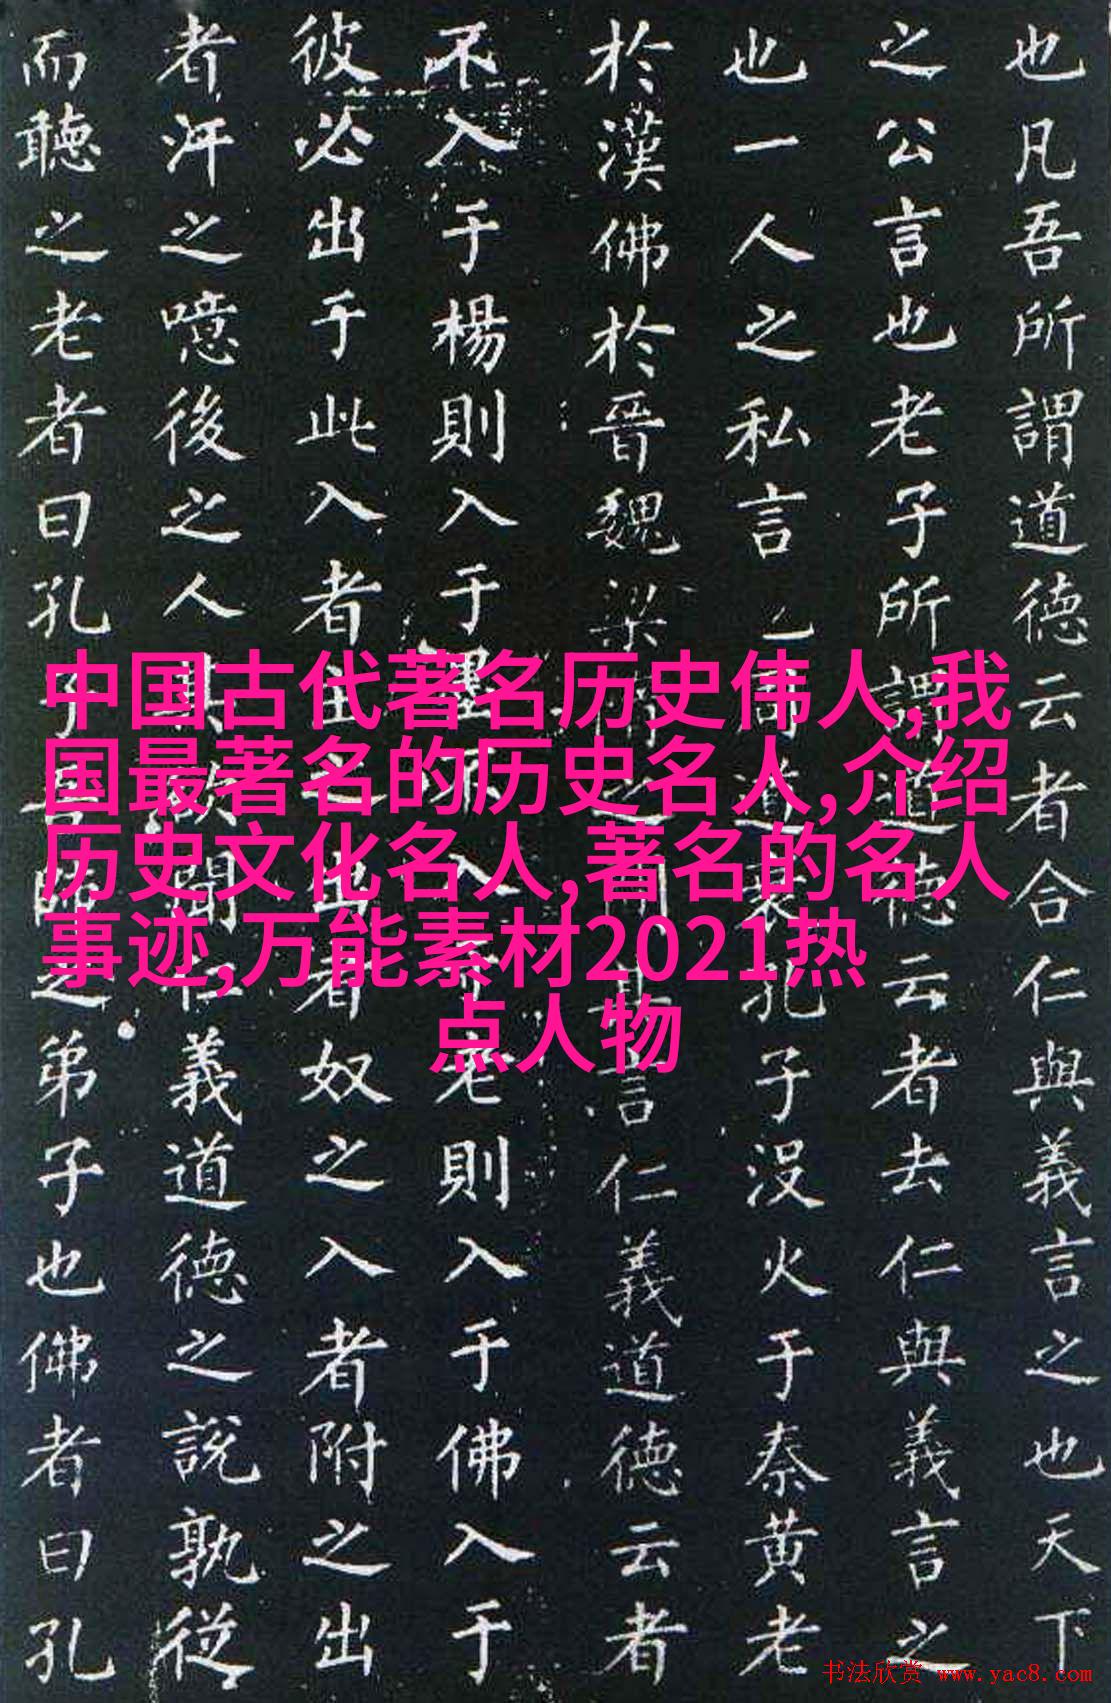 也凡吾所謂道德云者合仁與義言之也天下
之公言也老子所謂道德云者去仁與義言之
也一人之私言也周道衰孔子没火于秦黄老
於漢佛於晉魏梁隋之間其言仁義道德云者
不入于楊則入于墨不入于老則入于佛入于
彼必出于此入者主之出者奴之入者附之出
者汙之噫後之人其欲聞仁義道德之說孰從
而聽之老者曰孔子吾師之弟子也佛者曰孔
中国古代著名历史伟人,我
国最著名的历史名人,介绍
历史文化名人,著名的名人
事迹,万能素材2021热
点人物
书法欣赏 www.yac8.com